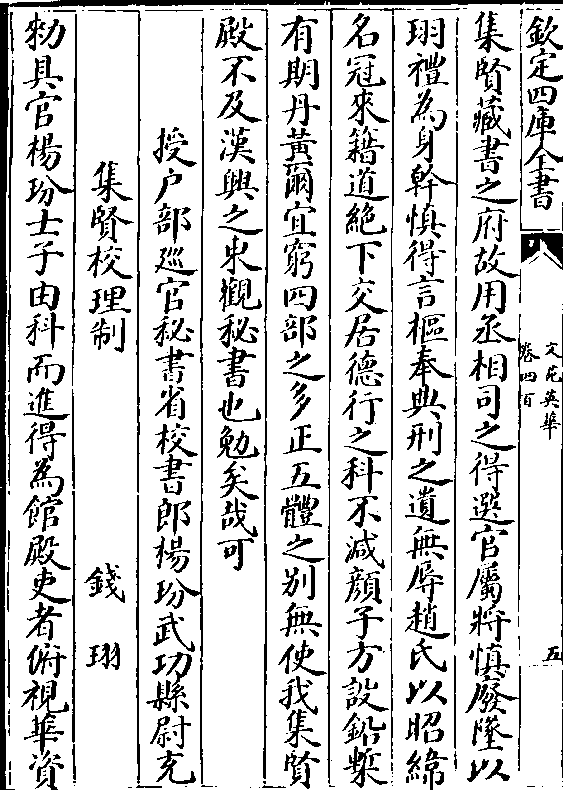 欽定四庫全書
文苑英華
卷四百
五
集賢藏書之府故用丞相司之得選官屬將慎廢墜以
珝禮為身幹慎得言樞奉典刑之遺無辱趙氏以昭緯
名冠來籍道絶下交居德行之科不減顔子方設鉛槧
有期丹黄爾宜窮四部之多正五體之别無使我集賢
殿不及漢興之東觀秘書也勉矣哉可
授户部廵官秘書省校書郎楊玢武功縣尉充
集賢校理制
錢珝
勑具官楊玢士子由科而進得為館殿吏者俯視華資